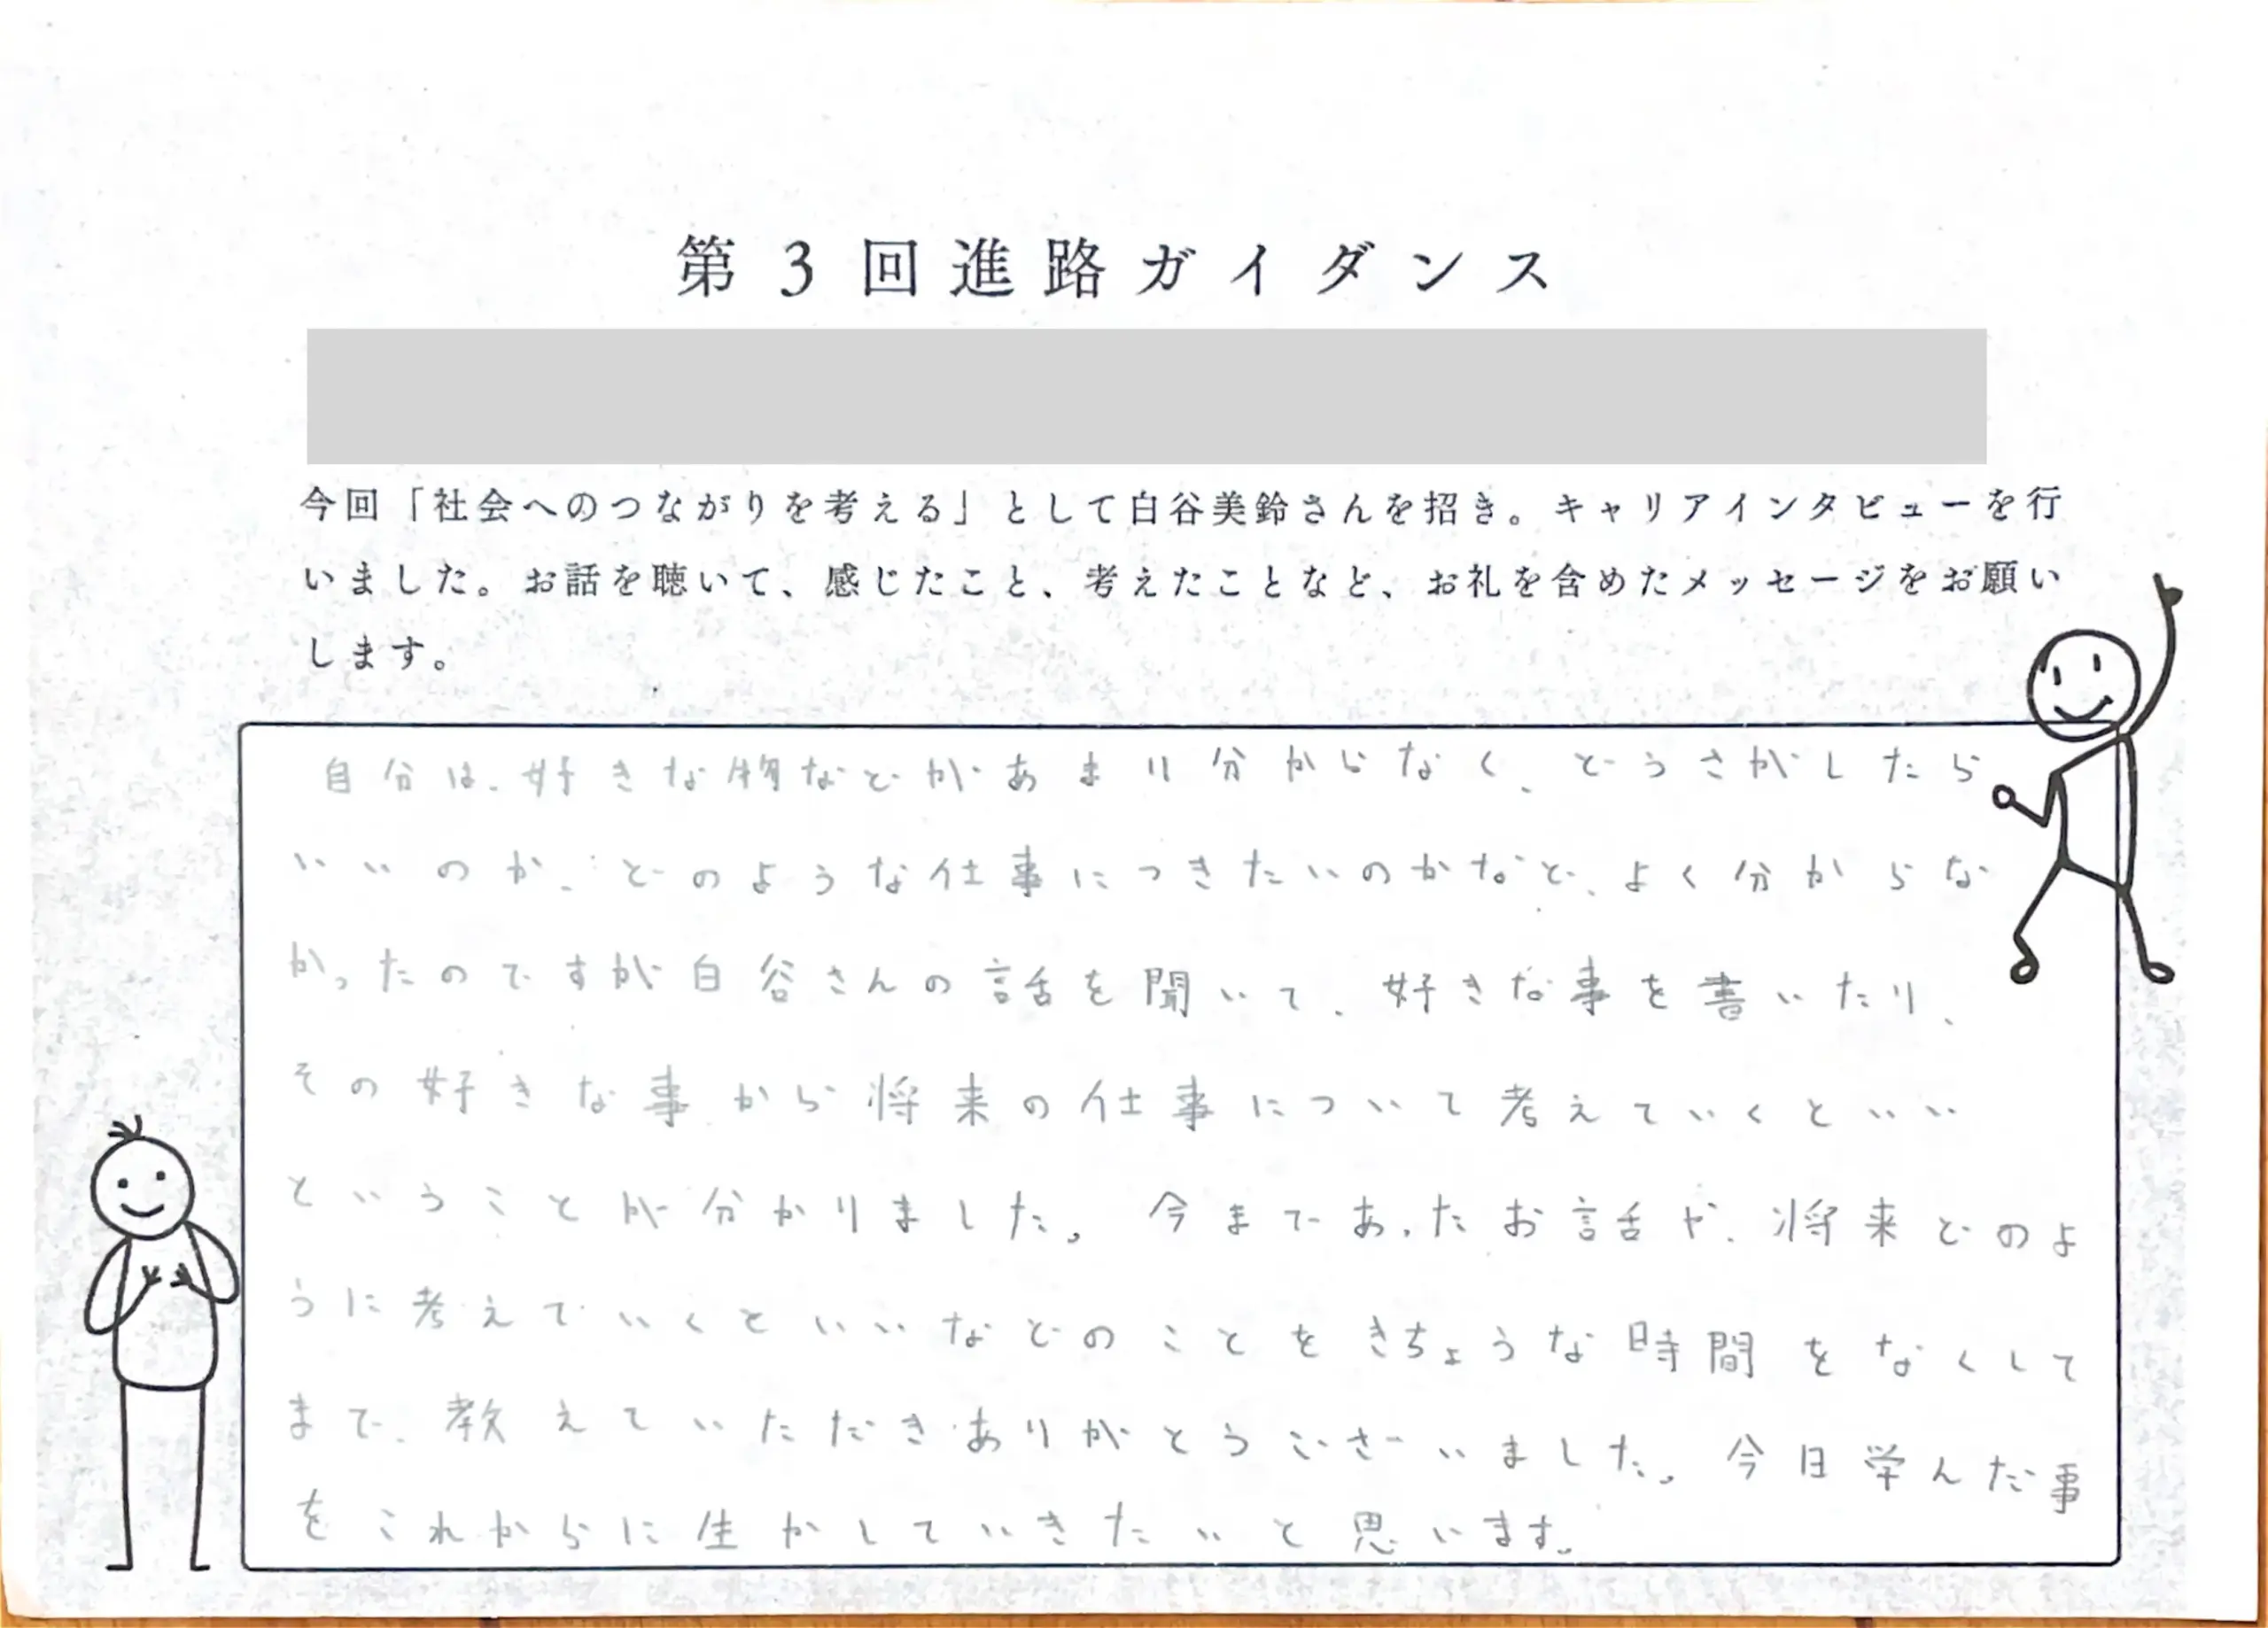 第3回進路ガイダンス
今回「社会へのつながりを考える」として白谷美鈴さんを招き。キャリアインタビューを行
いました。お話を聴いて、感じたこと、考えたことなど、お礼を含めたメッセージをお願い
します。
自分は、好きな物などがあまり分からなく、どうさがしたら
いいのか、どのような仕事につきたいのかなど、よく分からな
かったのですが白谷さんの話を聞いて、好きな事を書いたり、
その好きな事から将来の仕事について考えていくといい
ということが分かりました。今まであったお話や、将来どのよ
うに考えていくといいなどのことをきちょうな時間をなくして
まで、教えていただきありがとうございました。今日学んだ事
をこれからに生かしていきたいと思います。